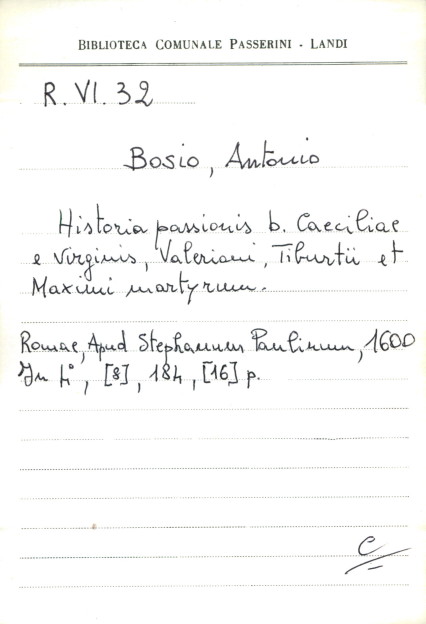 BIBLIOTECA COMUNALE PASSERINI - LANDI
R. VI. 32
Bosio, Antonio
Historia passionis b. Caeciliae
e Virginis, Valeriani, Tiburtii et
Maximi martyrum.
Romae, Apud Stephanum Paulinum, 1600
In 4°, [8], 184, [16] p.
C